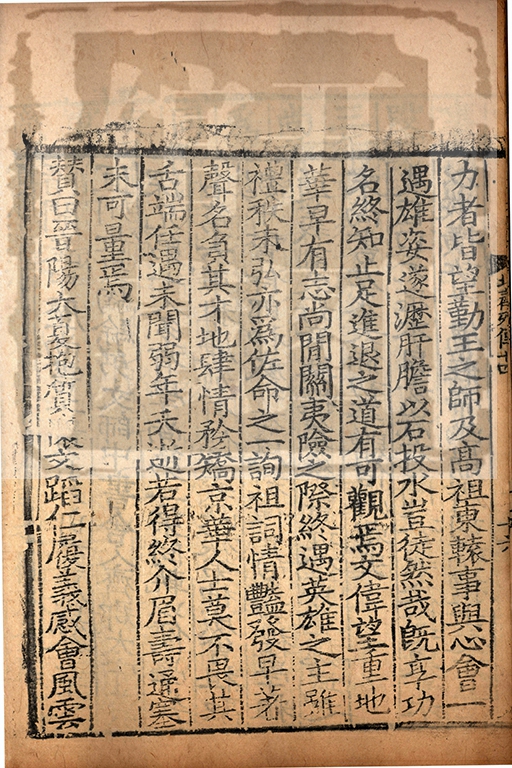 北齊列傳十四
力者皆望勤王之師及髙祖東轅事與心會一
遇雄姿遂瀝肝膽以石投水豈徒然哉旣享功
名終知止足進退之道有可觀焉文偉望重地
華早有志尚閒關夷險之際終遇英雄之主雖
禮秩未弘亦爲佐命之一詢祖詞情豔發早著
聲名負其才地肆情矜矯京華人士莫不畏其
舌端任遇未聞弱年夭逝若得終介眉壽通塞
未可量焉
贊曰晉陽大夏抱質文蹈仁履義感會風雲